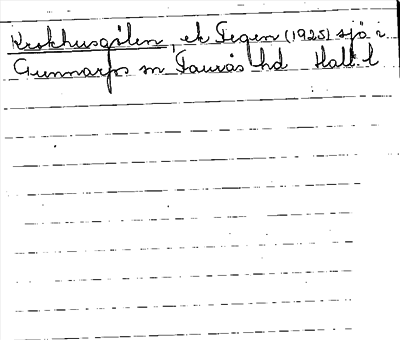 Krokhusgölen, ek Tegen (1925) sjö i
Gunnarps sn Faurås hd Hall. l